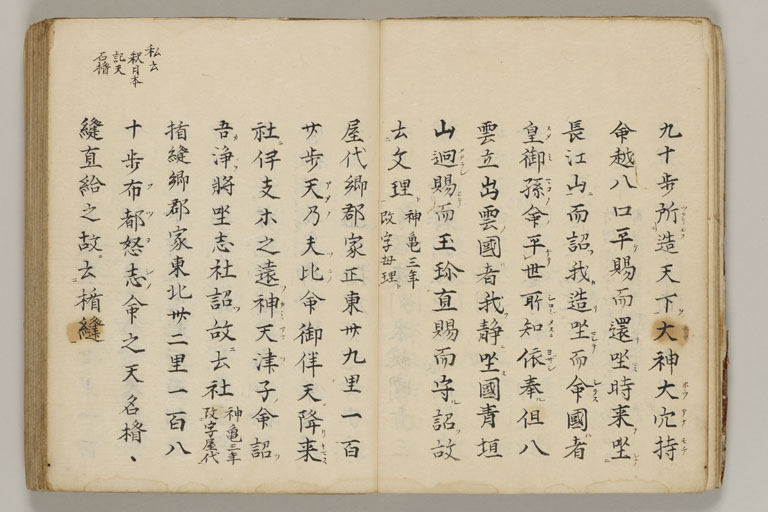 九十歩所造天下大神大穴持
命越八口平賜而還坐時来坐
長江山而詔我造坐而命國者
皇御孫命平世所知依奉但八
雲立出雲國者我静坐國青垣
山廻賜而玉珍直賜而守詔故
云文理 神亀三年
改字母理
屋代郷郡家正東卅九里一百
廿歩天乃夫比命御伴天降来
社伊支等之遠神天津子命詔
吾浄将坐志社詔故云社 神亀三年
改字屋代
楯縫郷郡家東北卅二里一百八
十歩布都怒志命之天名楯、
縫直給之故云楯縫
私云
釈日本
記天
石楯